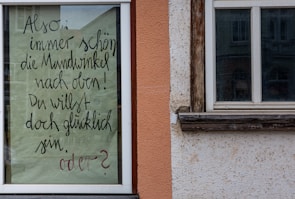 Also:
immer schön
die Mundwinkel
nach oben!
Du willst
doch glücklich
sein.
oder?